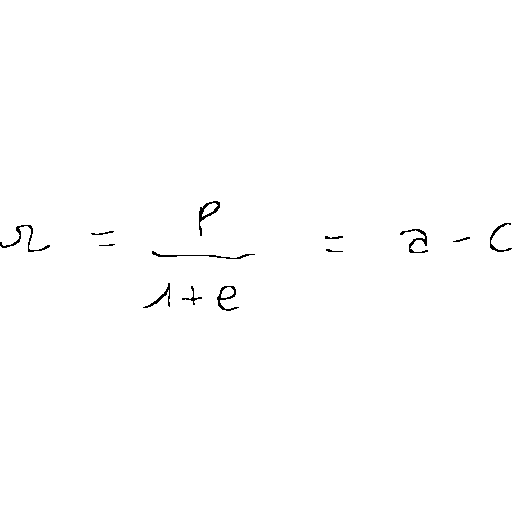 r = \frac{p}{1+e} = a - c